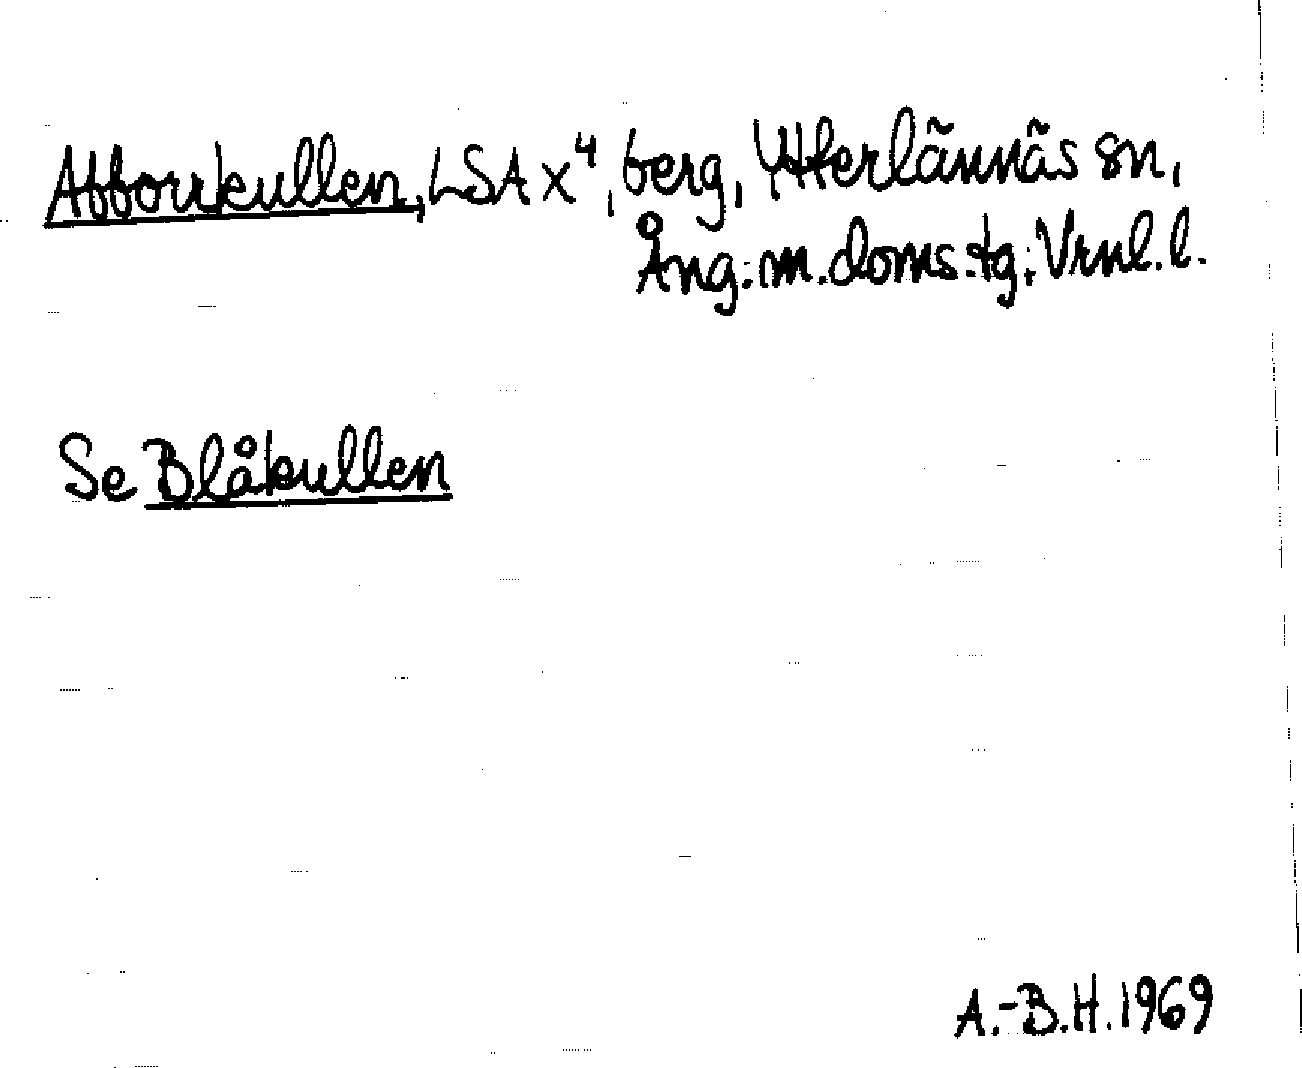 Afborrkullen, LSA x⁴, berg, Ytterlännäs sn,
Ång:m. doms.tg; Vrnl.l.
Se Blåkullen
A.-B.H.1969